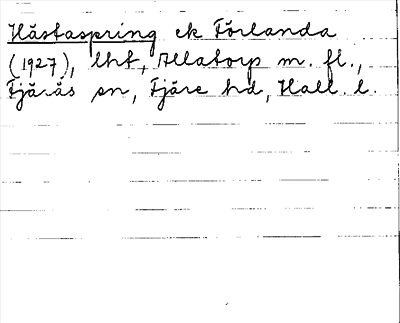 Hästaspring ek Förlanda
(1927), lht, Allatorp m. fl.,
Fjärås sn, Fjäre hd, Hall. l.